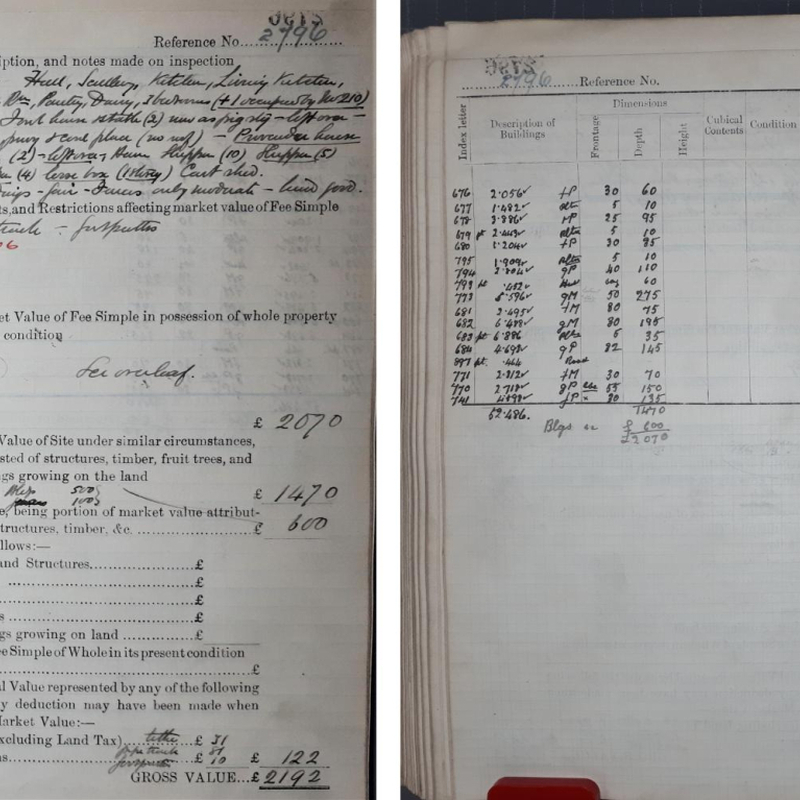 Reference No. 2796
iption, and notes made on inspection
Hall, Scullery, Kitchen, Living Kitchen,
Pantry, Dairy, 3 bedrooms (+1 occupied by No 210)
house stable (2) now as pigsty – left over –
privy & coal place (no roof) – Provender house
(2) – left over, Barn Shippon (10) Shippon (5)
(4) loose box (1 story) Cart shed.
– fair – Fences only moderate – land good.
ts, and Restrictions affecting market value of Fee Simple
et Value of Fee Simple in possession of whole property
condition
See overleaf.
£ 2070
Value of Site under similar circumstances,
sted of structures, timber, fruit trees, and
gs growing on the land
Blgs 500
100
£ 1470
e, being portion of market value attribut-
tructures, timber, &c. £ 600
llows:—
and Structures £
£
£
s £
gs growing on land £
ee Simple of Whole in its present condition
£
l Value represented by any of the following
y deduction may have been made when
Market Value:—
xcluding Land Tax) tithe £ 31
s £ 10 £ 122
GROSS VALUE...£ 2192
2796 Reference No.
Index letter
Description of Buildings
Dimensions
Frontage
Depth
Height
Cubical Contents
Condition
676 2.056 fP 30 60
677 1.482 5 10
678 3.886 25 95
679 pt 2.443 5 10
680 1.204 fP 30 35
795 1.909 5 10
794 gP 40 110
793 pt .452 60
773 5.596 gM 50 275
681 2.495 fM 30 75
682 6.488 gM 30 195
683 pt 6.886 5 35
684 4.698 gP 32 145
897 pt .464 Road
771 2.312 fM 30 70
770 2.718 gP 55 150
741 4.898 fP 30 135
52.486. 1470
Blgs £ 600
£2070